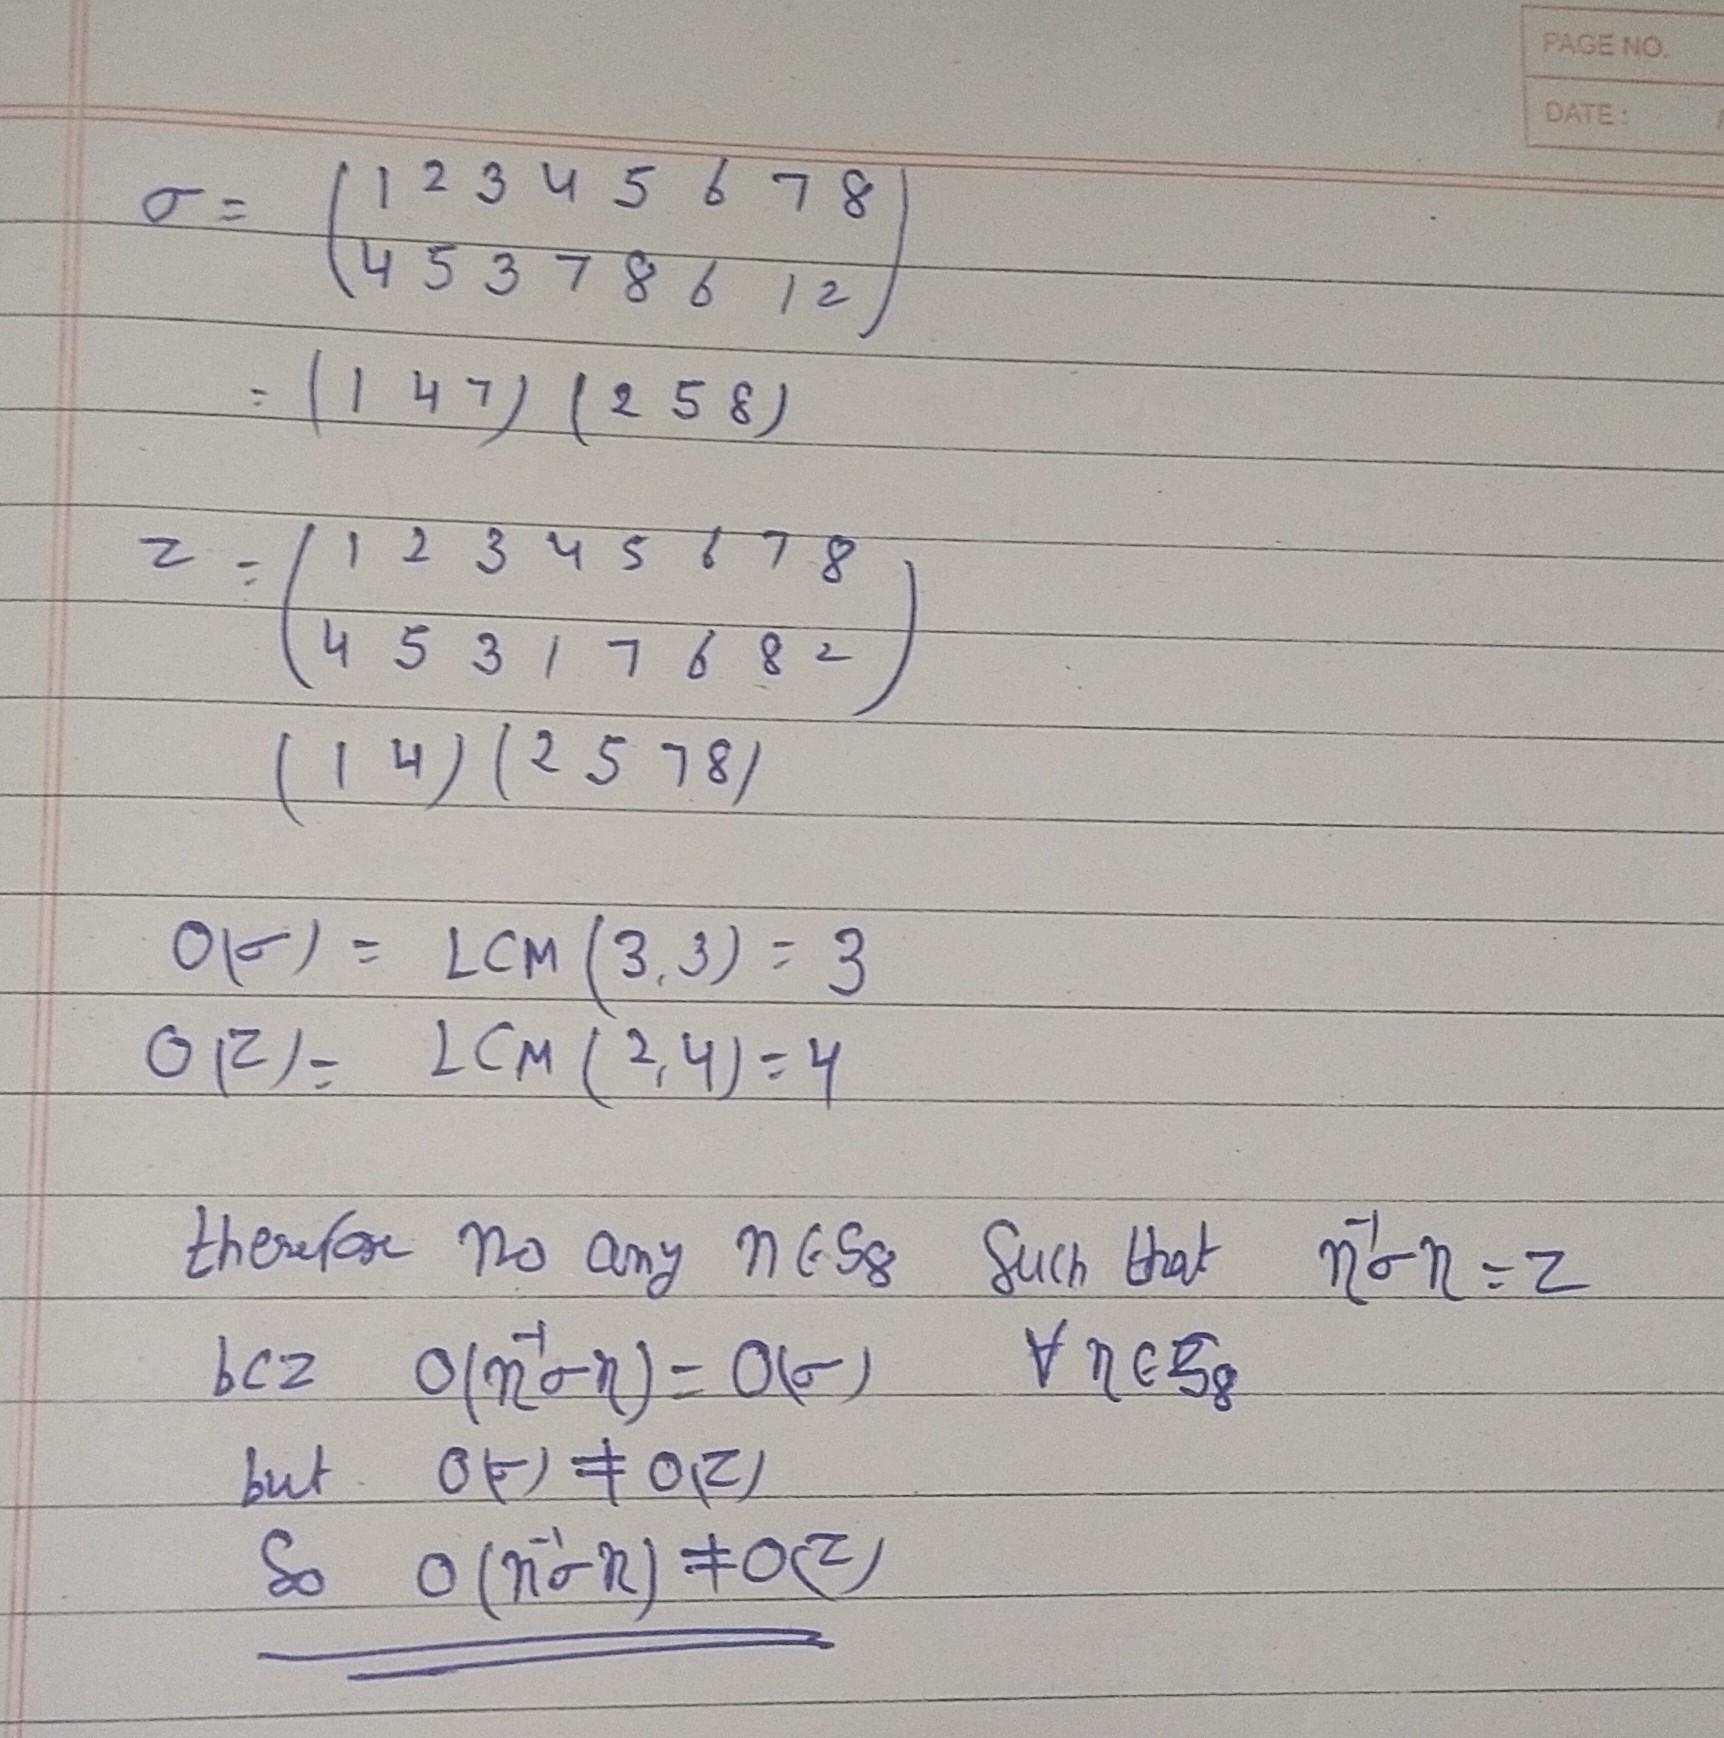 PAGE NO.
DATE:
σ = (1 2 3 4 5 6 7 8
4 5 3 7 8 6 1 2)
= (1 4 7) (2 5 8)
z = (1 2 3 4 5 6 7 8
4 5 3 1 7 6 8 2)
(1 4) (2 5 7 8)
O(σ) = LCM (3,3) = 3
O(z) = LCM (2,4) = 4
therefore no any η ∈ S₈ Such that η⁻¹ση = z
bcz O(η⁻¹ση) = O(σ) ∀ η ∈ S₈
but O(σ) ≠ O(z)
So O(η⁻¹ση) ≠ O(z)